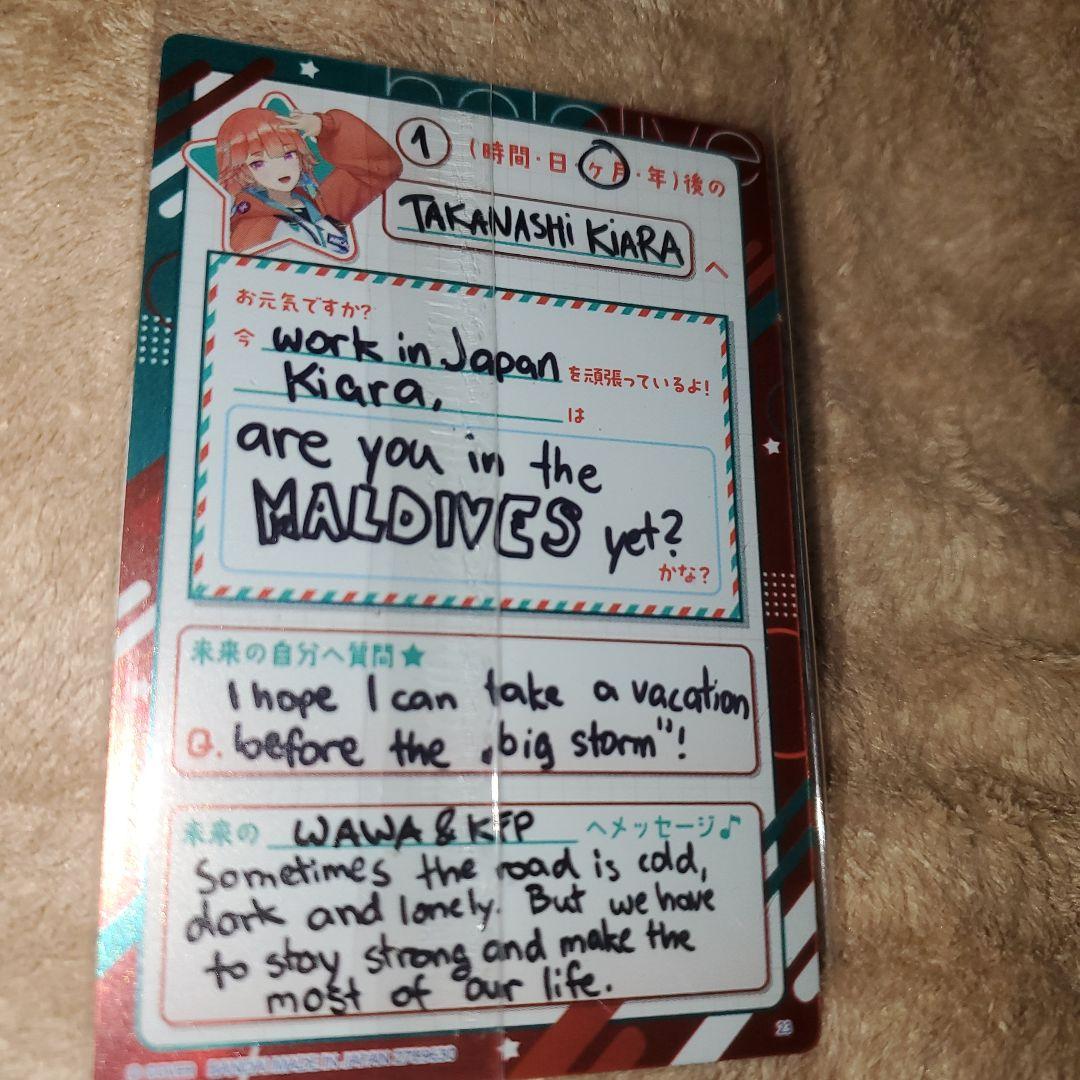 hololive
1 (時間・日・ケ月・年)後の
TAKANASHI KIARA へ
お元気ですか?
今 work in Japan を頑張っているよ!
Kiara, は
are you in the
MALDIVES yet?
かな?
未来の自分へ質問★
I hope I can take a vacation
Q. before the „big storm"!
未来の WAWA & KFP へメッセージ♪
Sometimes the road is cold,
dark and lonely. But we have
to stay strong and make the
most of our life.
23
MADE IN JAPAN